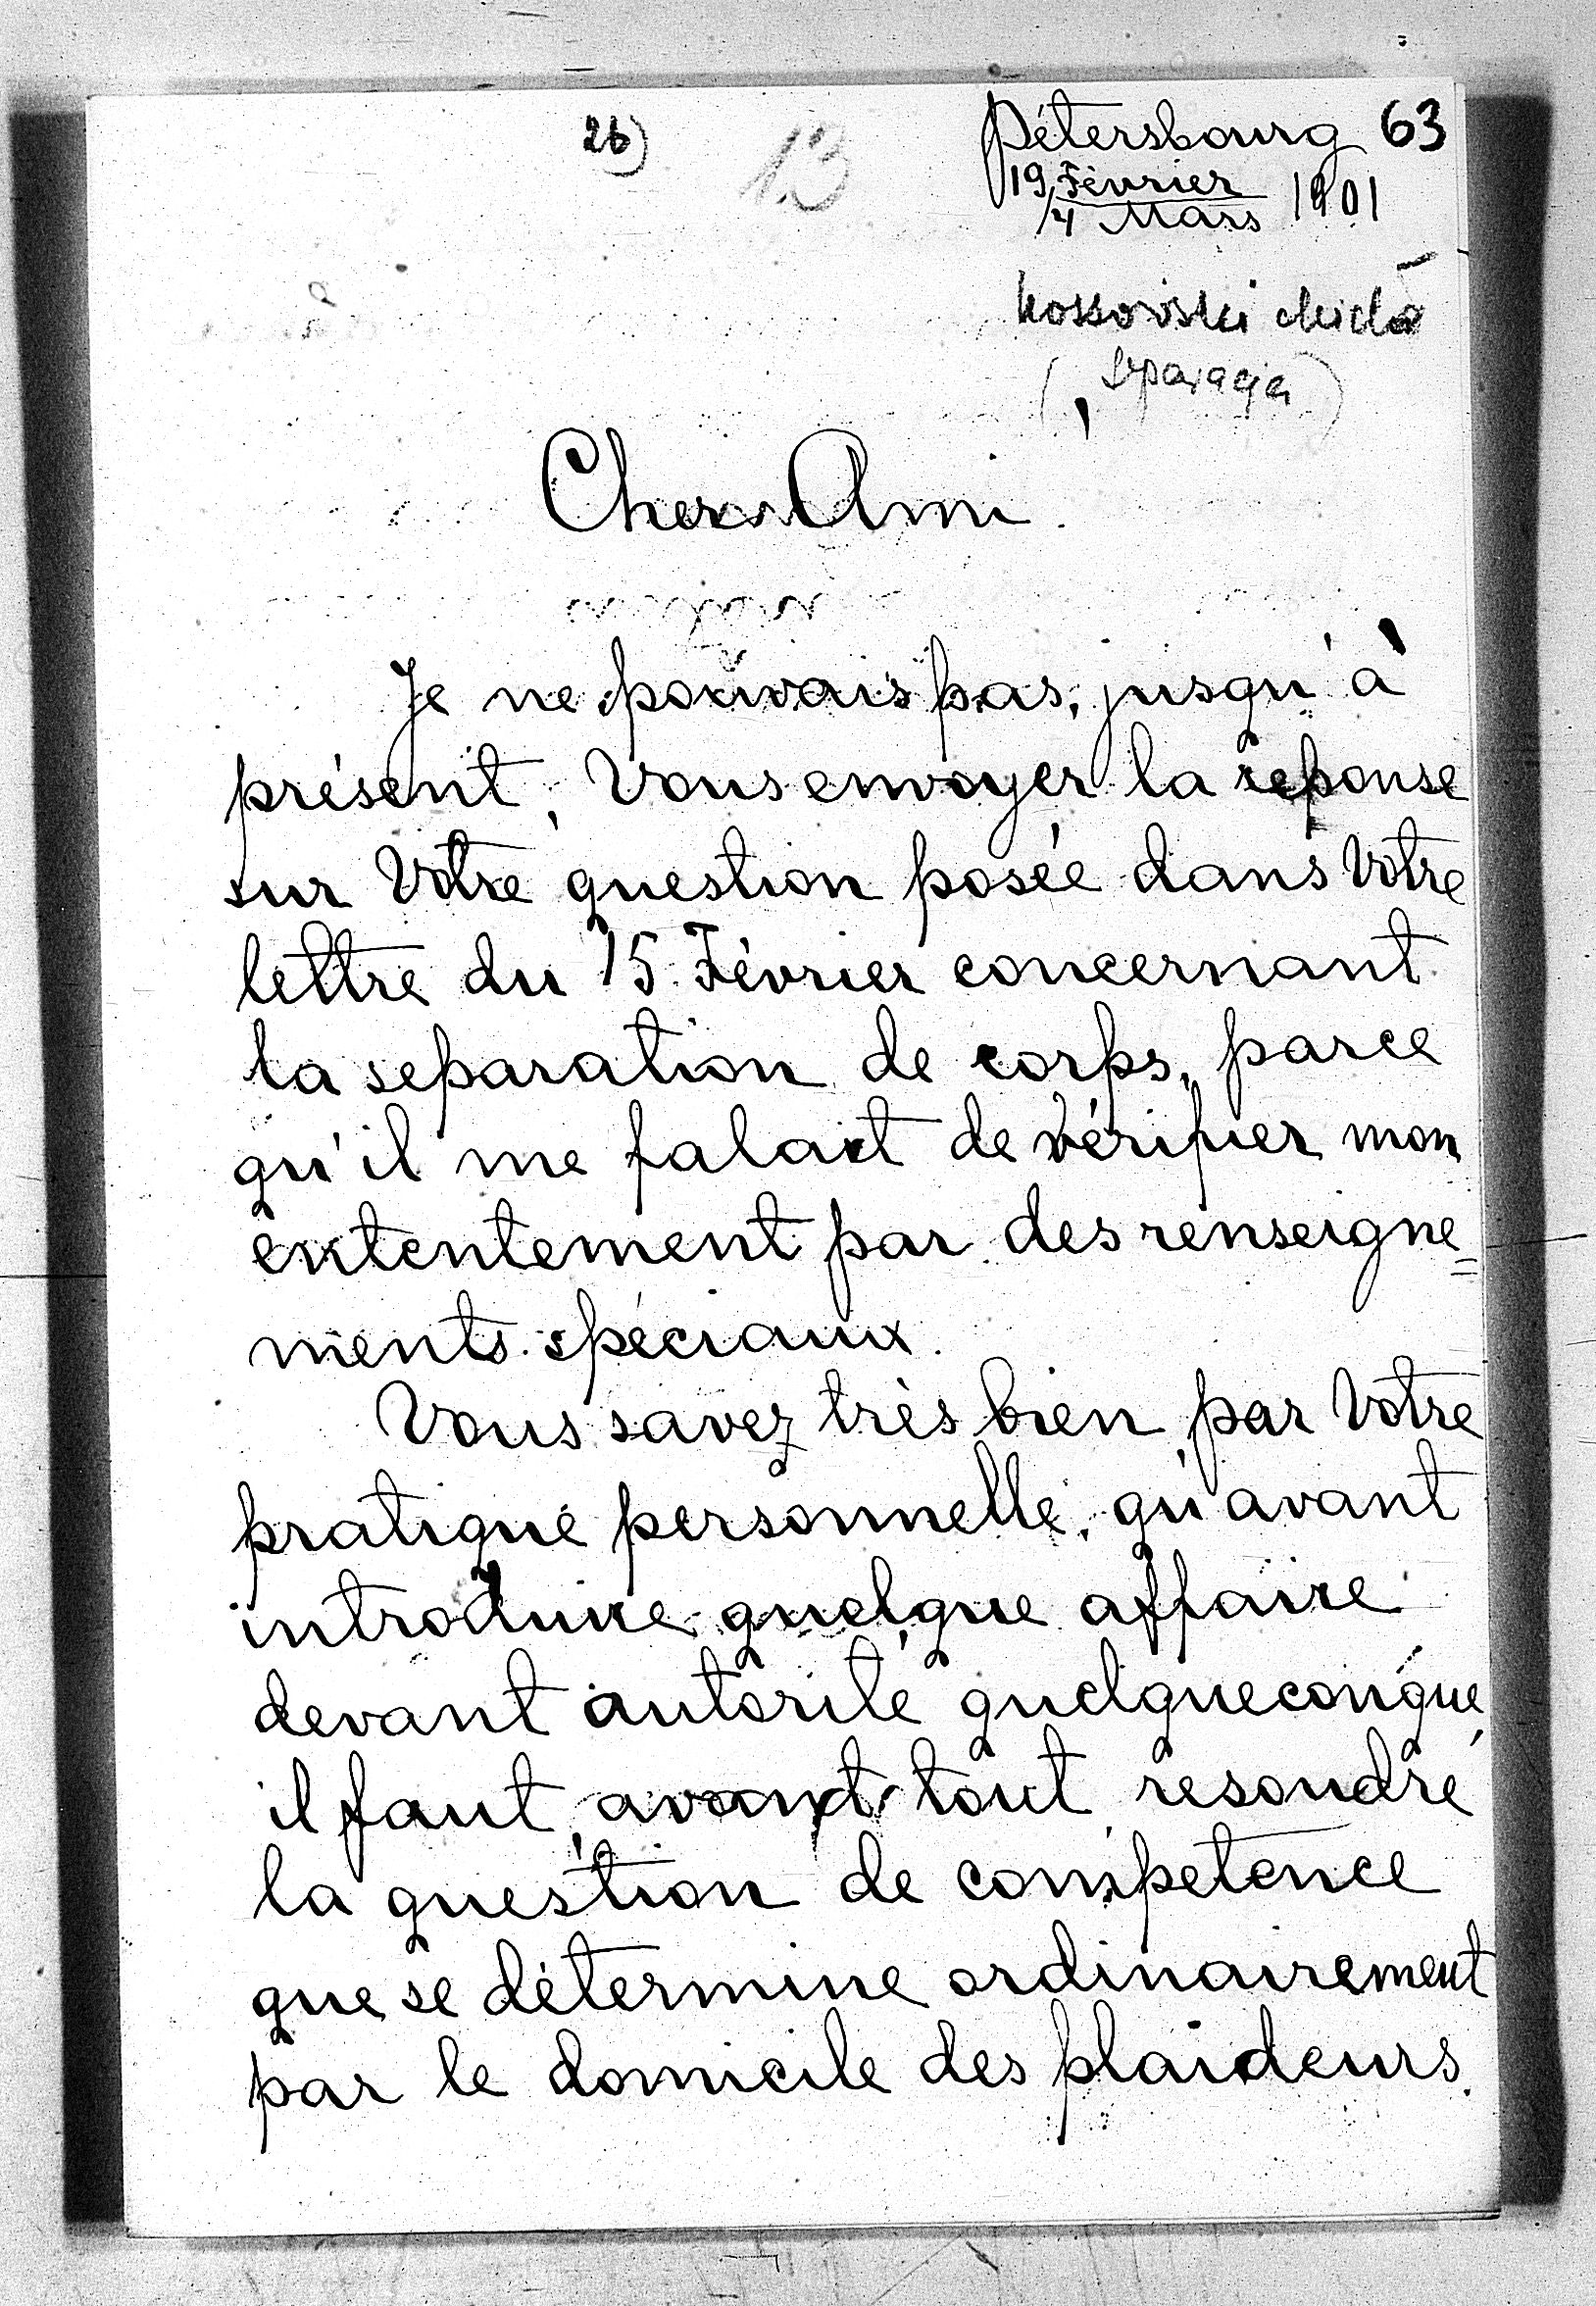 26)
13
Pétersbourg 63
19 Février
/4 Mars 1901
Kossowski
(separacja)
Cher Ami.
Je ne pouvais pas, jusqu'à
présent, Vous envoyer la reponse
sur Votre question posée dans Votre
lettre du 15 Février concernant
la separation de corps, parce
qu'il me falait de vérifier mon
ententement par des renseigne=
ments spéciaux.
Vous savez très bien, par Votre
pratique personnelle, qu'avant
introduire quelque affaire
devant autorité quelqueconque,
il faut, avant tout resoudre
la question de competence
que se détermine ordinairement
par le domicile des plaideurs.